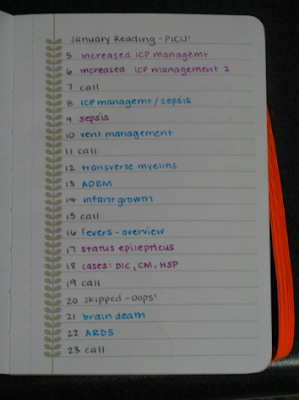 January Reading - PICU!
5 increased ICP managemt
6 increased ICP management 2
7 call
8 ICP managemt / sepsis
9 sepsis
10 vent management
11 call
12 transverse myelitis
13 ADEM
14 infant growth
15 call
16 fevers - overview
17 status epilepticus
18 cases: DIC, CM, HSP
19 call
20 skipped - oops!
21 brain death
22 ARDS
23 call